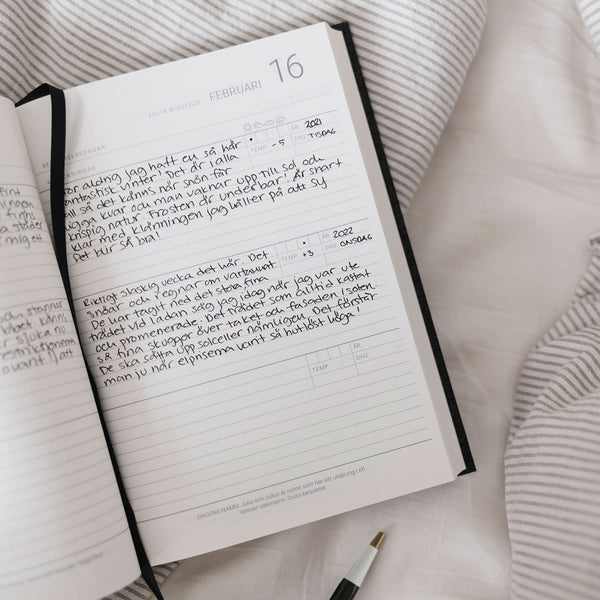 JULIA & JULIUS FEBRUARI 16
ÅR 2021
TEMP -5 DAG TISDAG
aldrig jag haft en så här
fantastisk vinter! Det är i alla
fall så det känns när snön får
ligga kvar och man vaknar upp till sol och
krispig natur. Frosten är underbar! Är snart
klar med klänningen jag håller på att sy
Det blir så bra!
ÅR 2022
TEMP +3 DAG ONSDAG
Riktigt slaskig vecka det här. Det
snöar och regnar om vartannat.
De har tagit ned det stora fina
trädet vid ladan såg jag idag när jag var ute
och promenerade. Det trädet som alltid kastat
så fina skuggor över taket och fasaden i solen.
De ska sätta upp solceller nämligen. Det förstår
man ju när elpriserna varit så hutlöst höga!
TEMP ÅR
DAG
DAGENS NAMN: Julia och Julius är namn som har sitt ursprung i ett
latinskt släktnamn. Oviss betydelse.